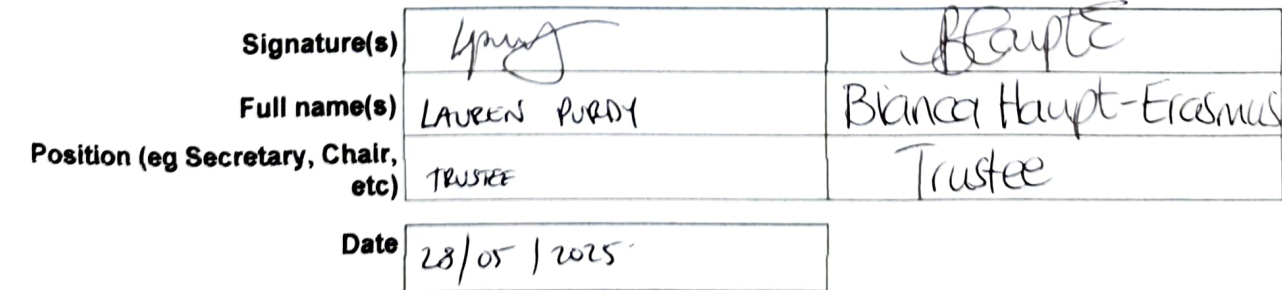 Signature(s)
Full name(s) LAUREN PURDY Bianca Haupt-Erasmus
Position (eg Secretary, Chair,
etc) TRUSTEE Trustee
Date 28/05/2025